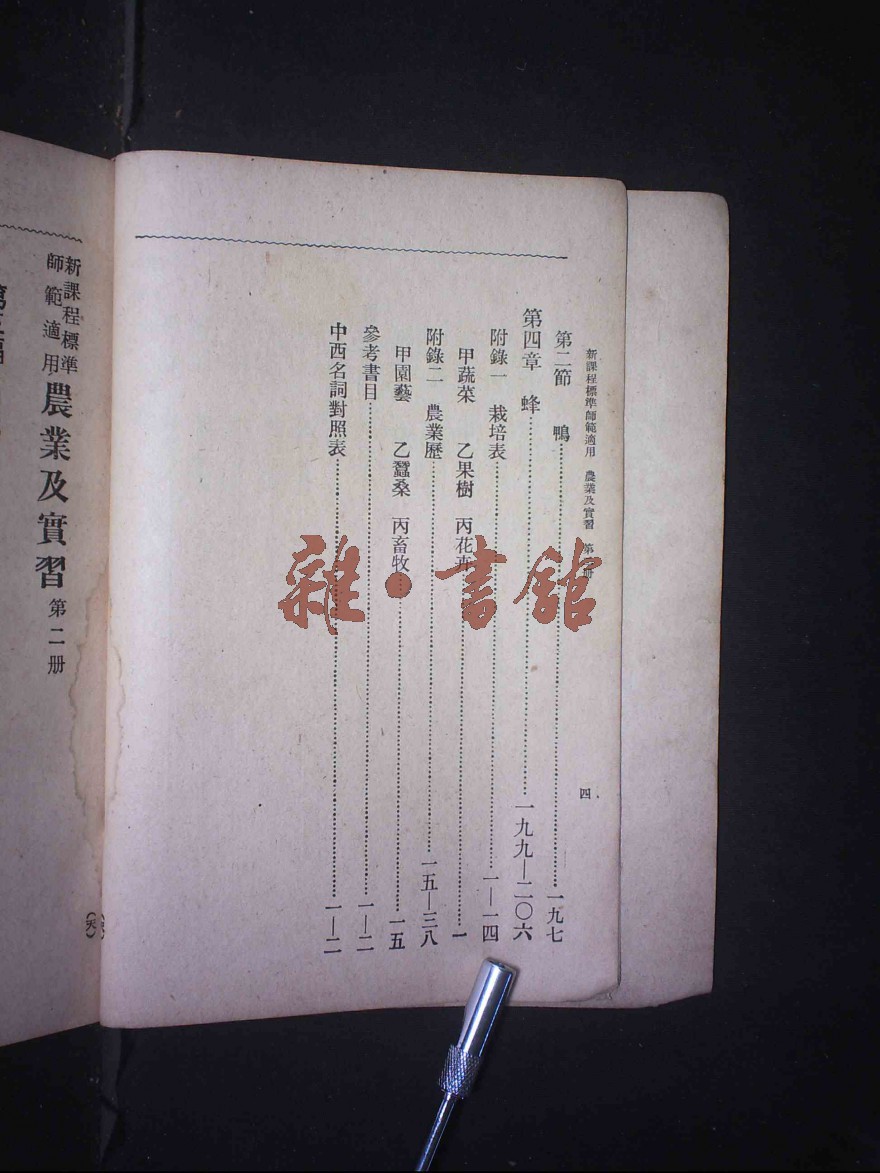 新課程標準師範適用 農業及實習 第二册
四
第二節 鴨……一九七
第四章 蜂……一九九—二〇六
附錄一 栽培表……一—一四
甲蔬菜 乙果樹 丙花卉……一
附錄二 農業歷……一五—三八
甲園藝 乙蠶桑 丙畜牧……一五
參考書目……一—二
中西名詞對照表……一—二
新課程標準
師範適用
農業及實習 第二册
雜·書館